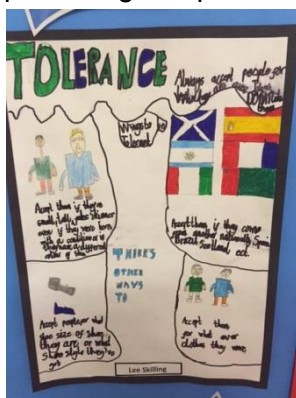 TOLERANCE
Always accept people for
What they are
Ways to be
Tolerant
Accept them if they're
small, tall,
even if they were born
with a condition or
they have a different
color of skin
Accept them if they come
from another nationality Spain
Brazil, Scotland, ect.
THERE'S
OTHER
WAYS
TO
Accept people for what
shoe size of shoes
they are, or what
shoe style they've
got
Accept them
for what ever
clothes they wear
Lee Skilling